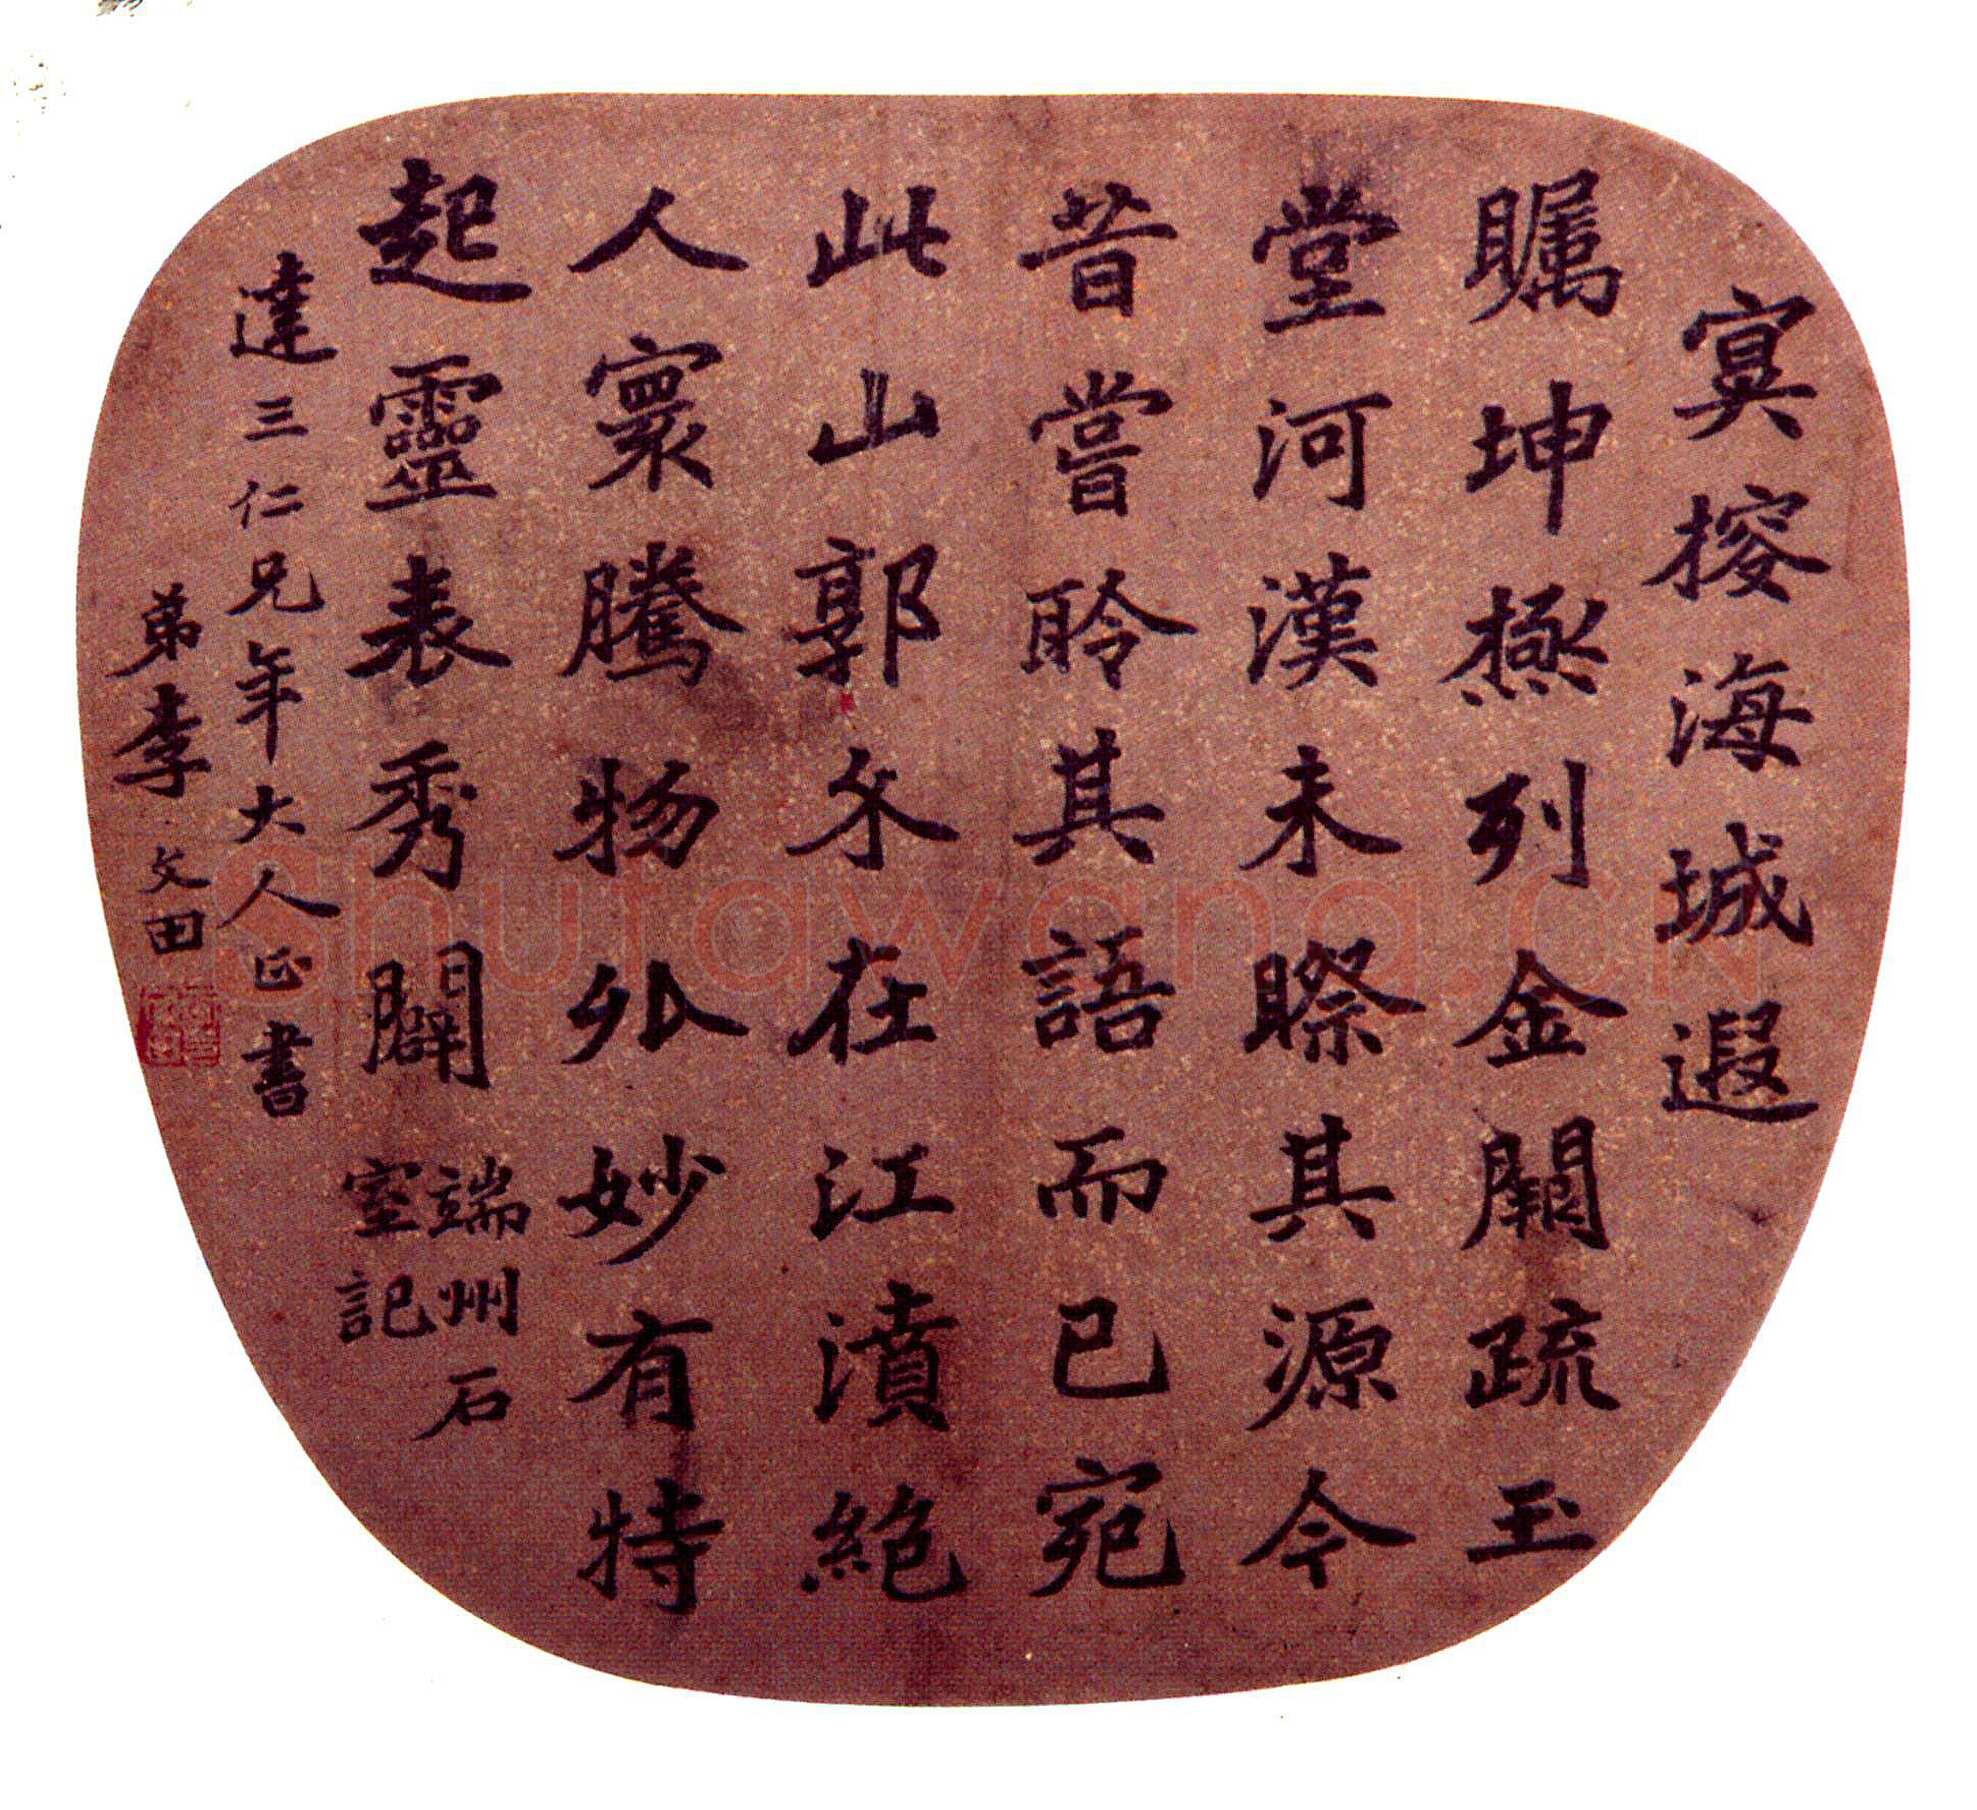 寞搜海城遐
矚坤極列金闕疏玉
堂河漢未瞭其源今
昔嘗聆其語而已宛
此山郭介在江濆絶
人寰騰物外妙有特
起靈表秀闢
端州石
室記
達三仁兄年大人正書
弟李文田
Shufawang.CN